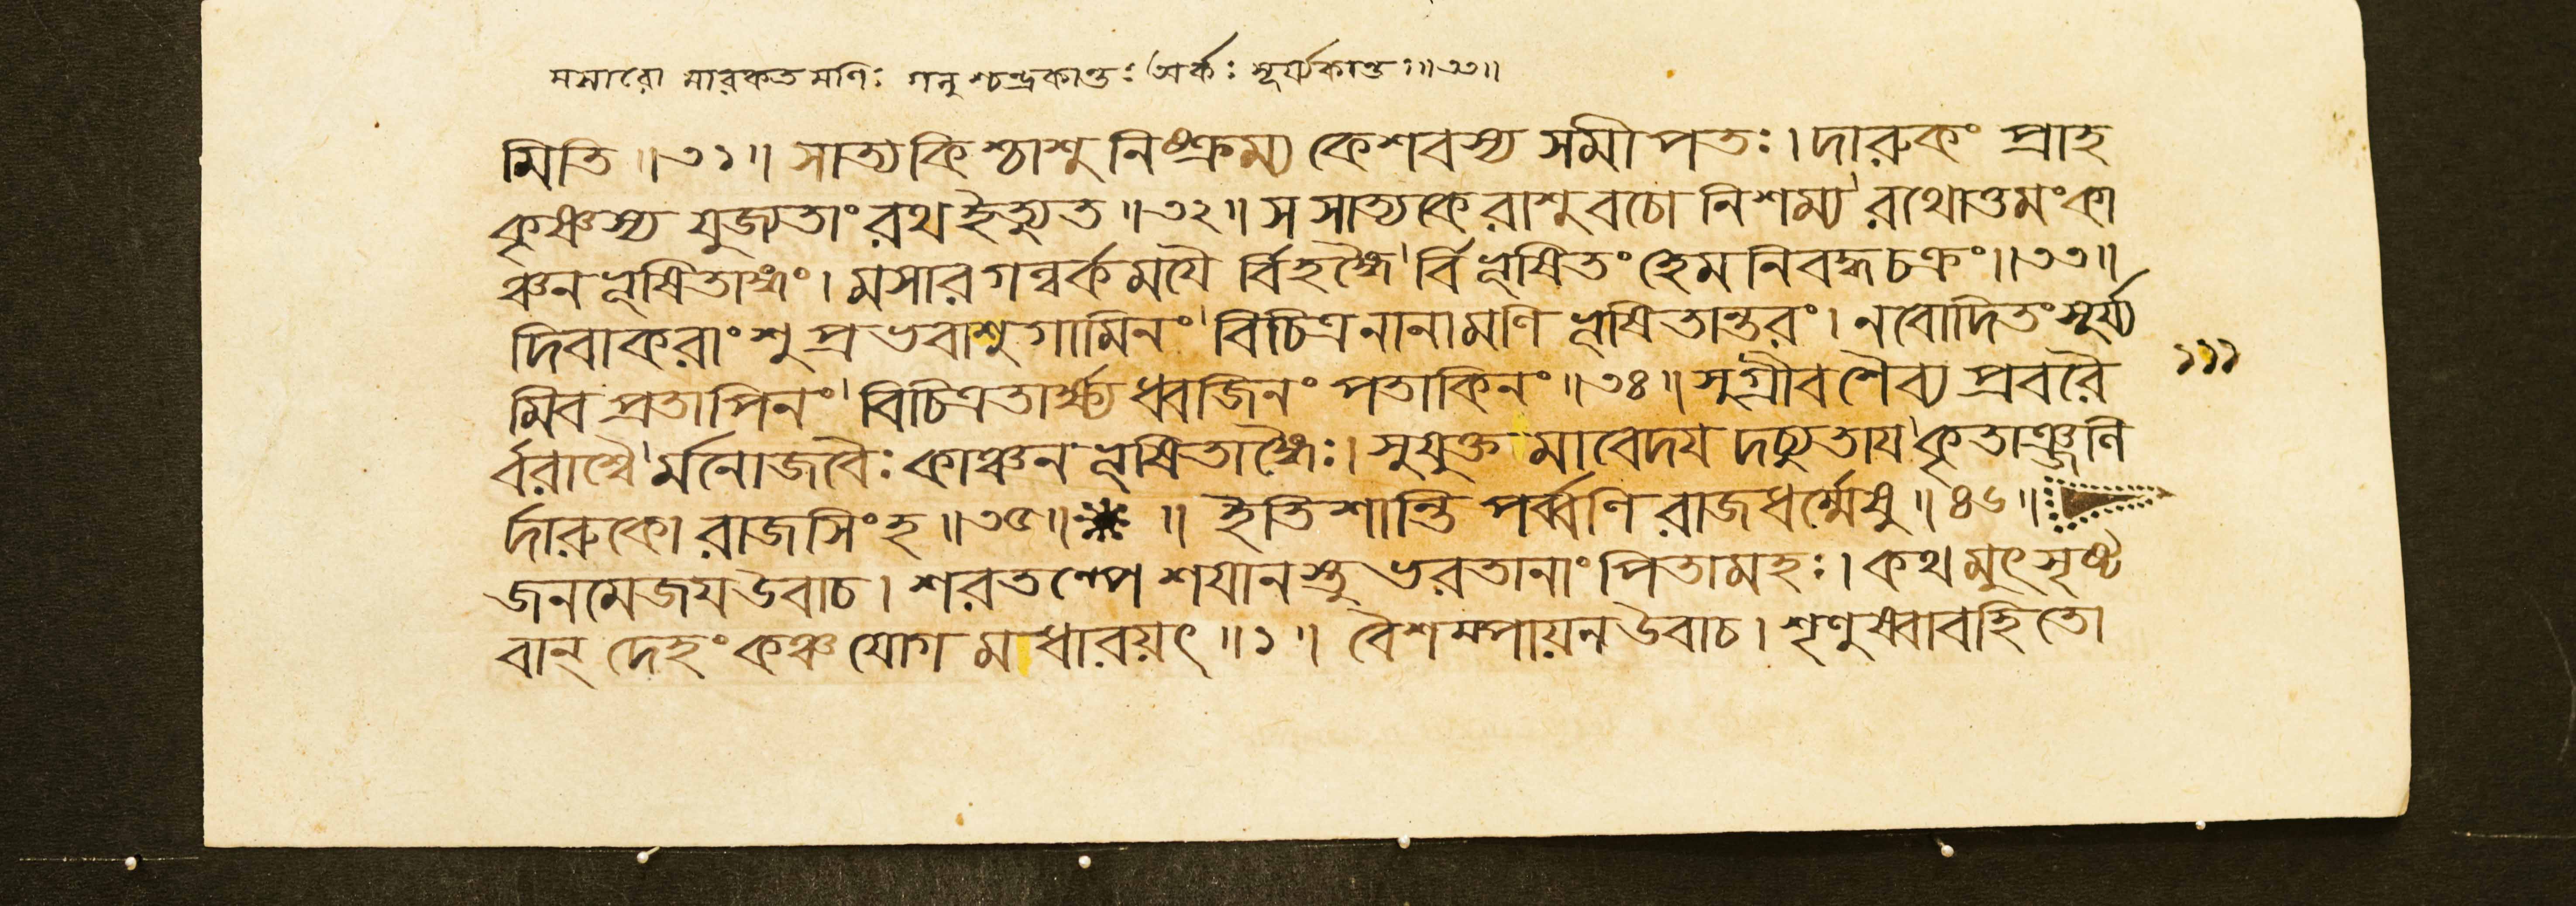 মসারো মারকতমণিঃ গলুশ্চন্দ্রকান্তঃ অর্কঃ সূর্য্যকান্তঃ॥৩৩॥
মিতি॥৩১॥ সাত্যকিশ্চাশু নিষ্ক্রম্য কেশবস্য সমীপতঃ। দারুকং প্রাহ
কৃষ্ণস্য যুজ্যতাং রথ ইত্যুত॥৩২॥ স সাত্যকেরাশুবচো নিশম্য রথোত্তমং কা
ঞ্চনভূষিতাঙ্গং। মসারগল্বর্কময়ৈ র্বিহঙ্গৈ র্বিভূষিতং হেমনিবদ্ধচক্রং॥৩৩॥
দিবাকরাংশুপ্রভবাশুগামিনং বিচিত্রনানামণিভূষিতান্তরং। নবোদিতং সূর্য্য
১১১
মিব প্রতাপিনং বিচিত্রতার্ক্ষ্যধ্বজিনং পতাকিনং॥৩৪॥ সুগ্রীবশৈব্যপ্রবরৈ
র্বরাশ্বৈ র্মনোজবৈঃ কাঞ্চনভূষিতাঙ্গৈঃ। সুযুক্তমাবেদয়দচ্যুতায় কৃতাঞ্জলি
র্দারুকো রাজসিংহ॥৩৫॥ ॥ ইতি শান্তিপর্ব্বণি রাজধর্ম্মেষু॥৪৬॥
জনমেজয় উবাচ। শরতল্পে শয়ানস্তু ভরতানাং পিতামহঃ। কথমুৎসৃষ্ট
বান্ দেহং কঞ্চ যোগমাধারয়ৎ॥১॥ বৈশম্পায়ন উবাচ। শৃণুষ্বাবহিতো